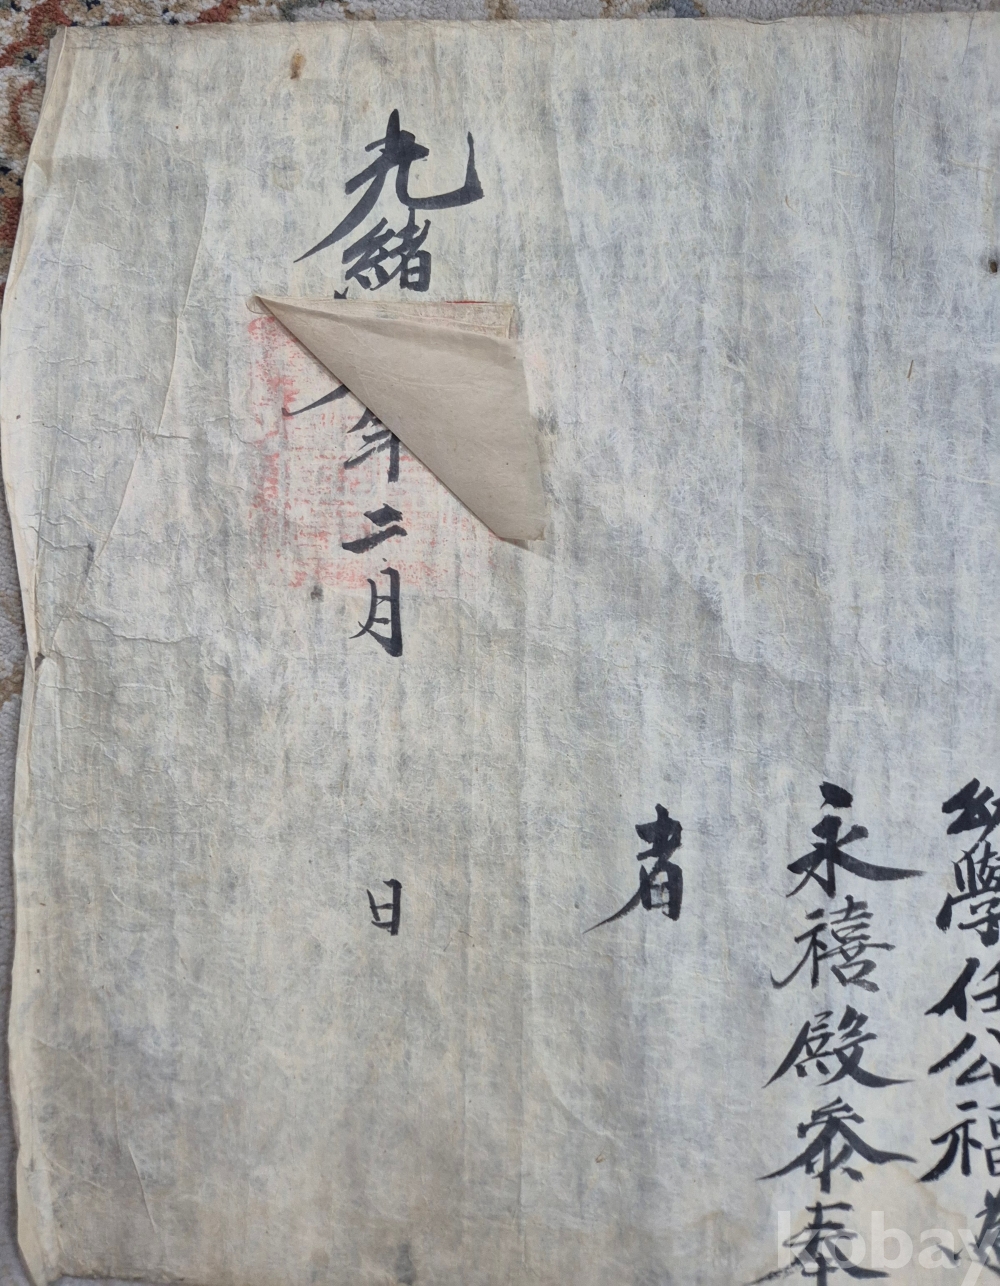 幼學任公福為
永禧殿參奉
者
光緒年二月 日
kobay